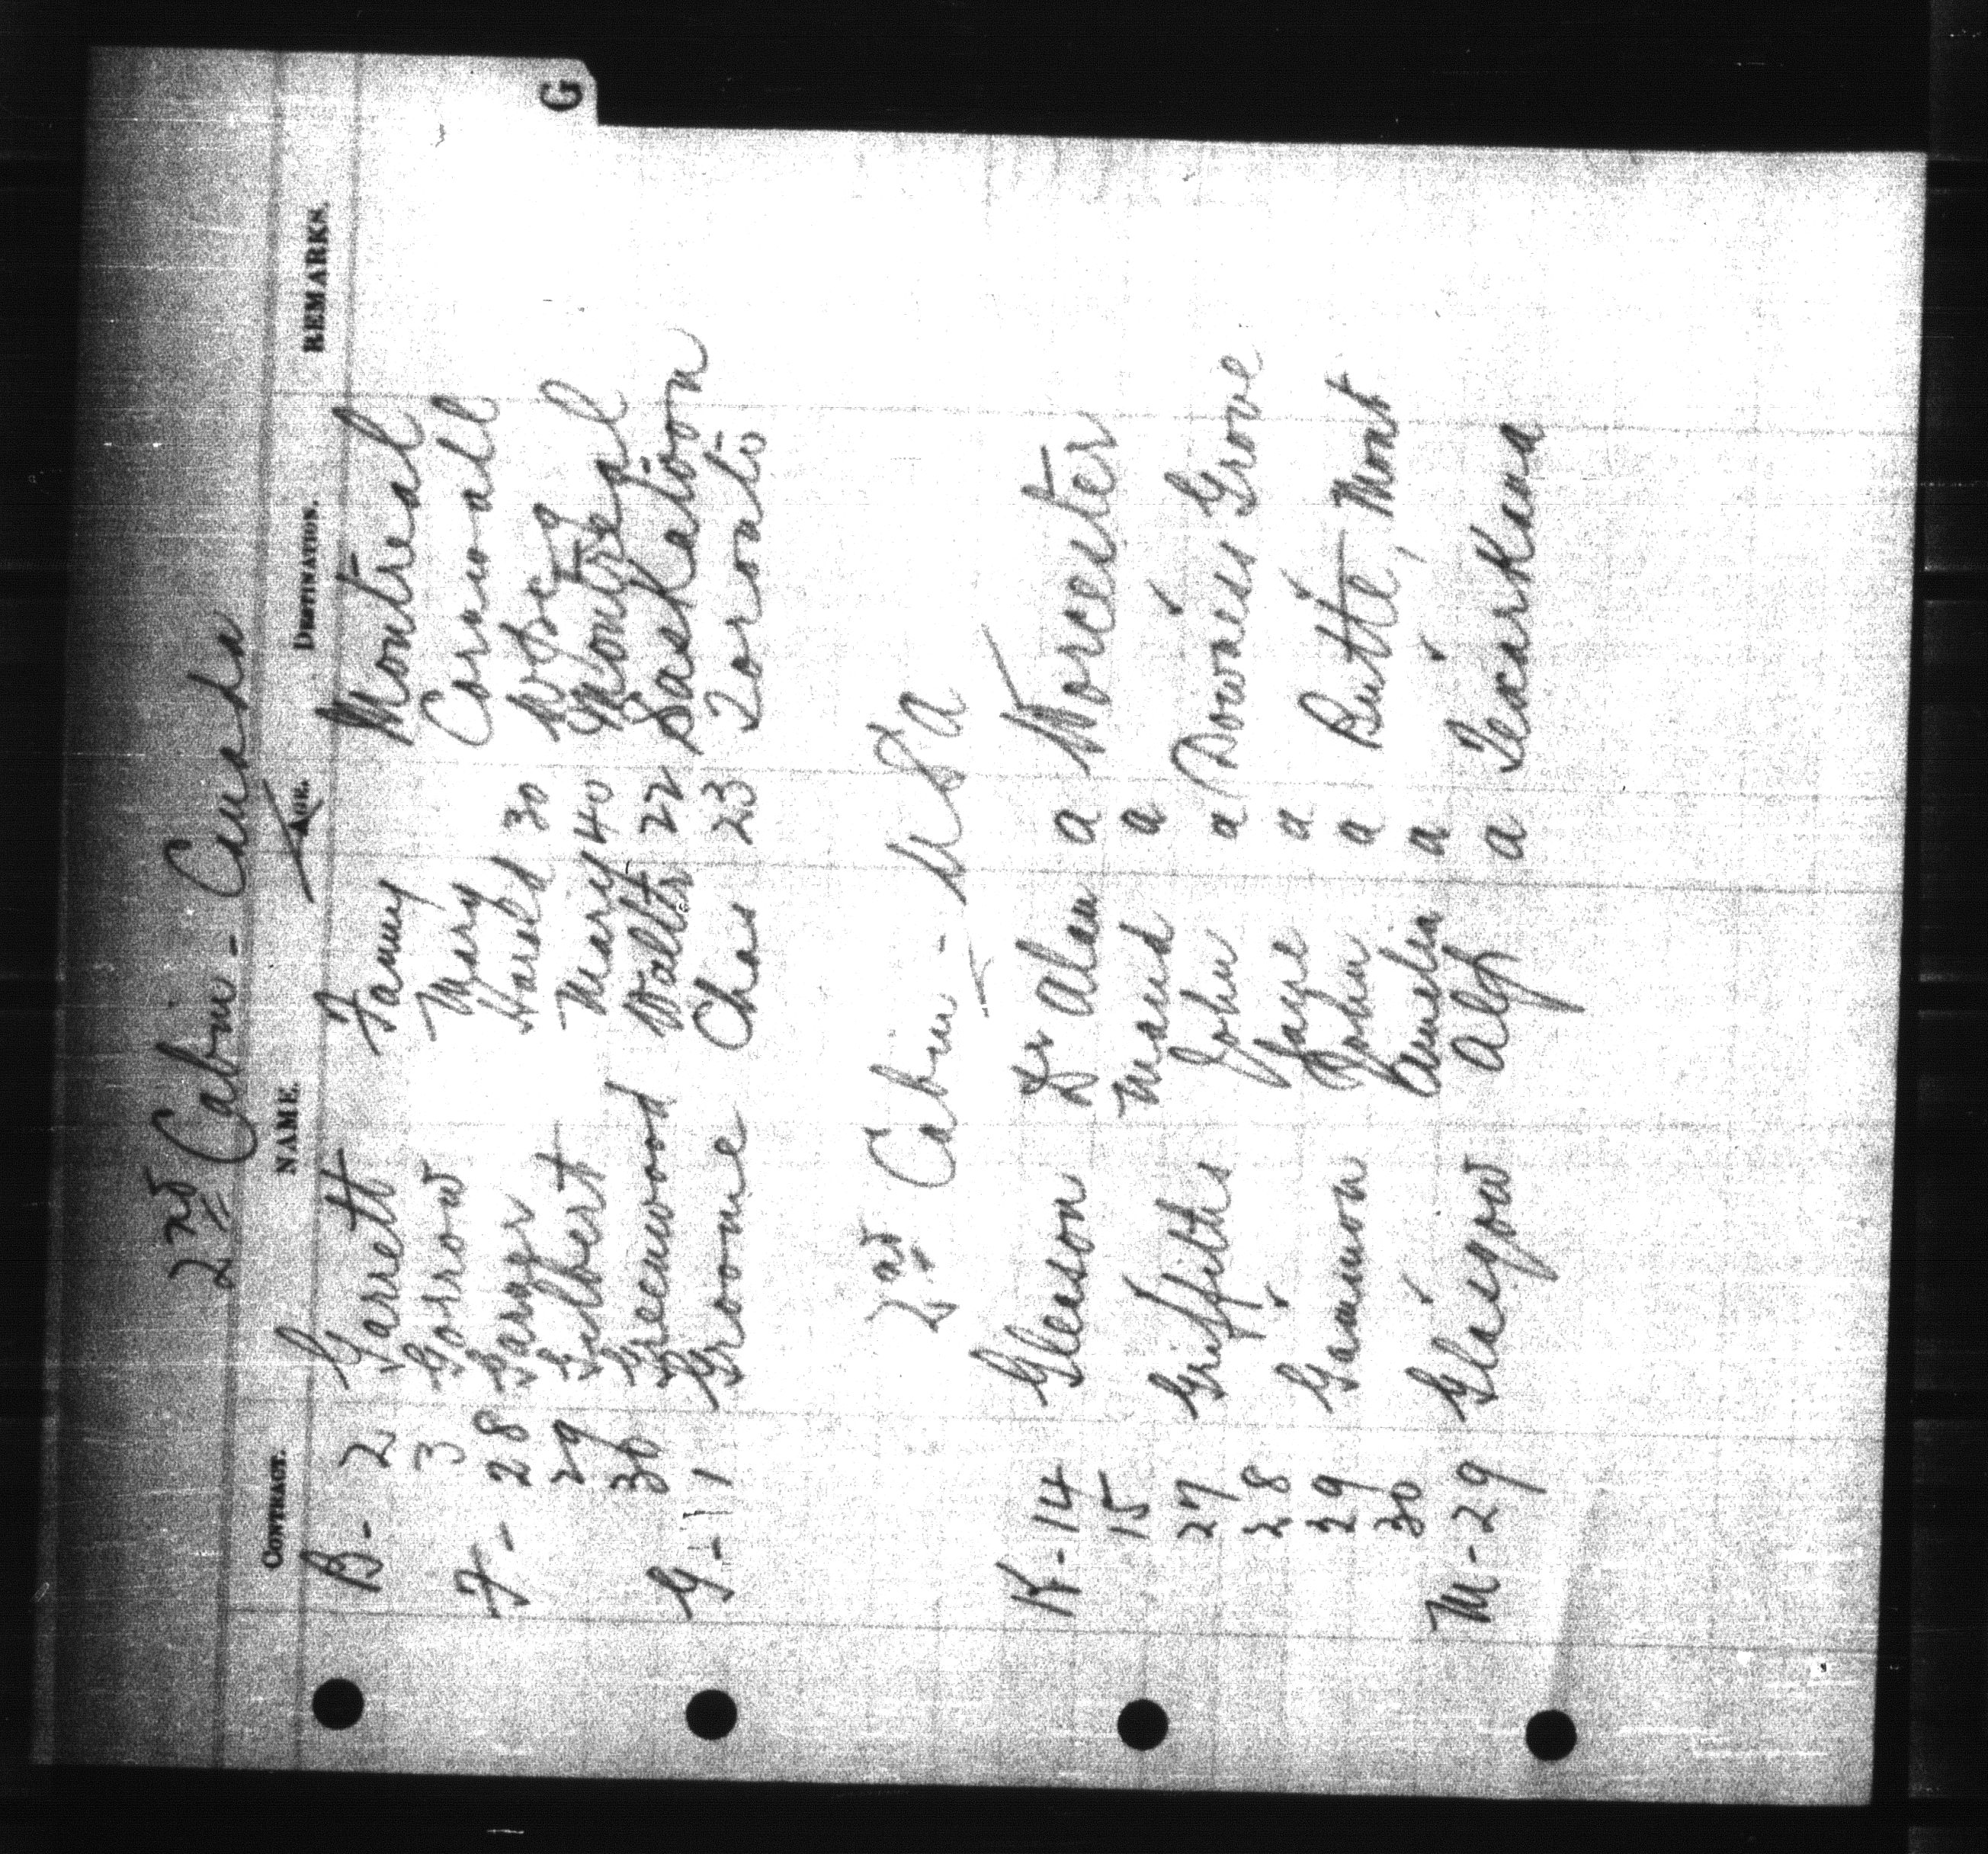 G
2nd Cabin - Canada
CONTRACT. NAME. AGE. DESTINATION. REMARKS.
B - 2 Garrett Fanny Montreal
3 Gorrow Mary Cornwall
F - 28 Harold 30 Wpeg
29 Gilbert Mary 40 Montreal
30 Greenwood Walter 22 Saskatoon
G - 1 Groome Chas 23 Toronto
2nd Cabin - USA
K - 14 Gleeson Dr Alan a Worcester
15 Maud a
27 Griffiths John a Downers Grove
28 Jayne a
29 Gammon John a Butte, Mont
30 Amelia a
M - 29 Glasgow Alf a Texarkana